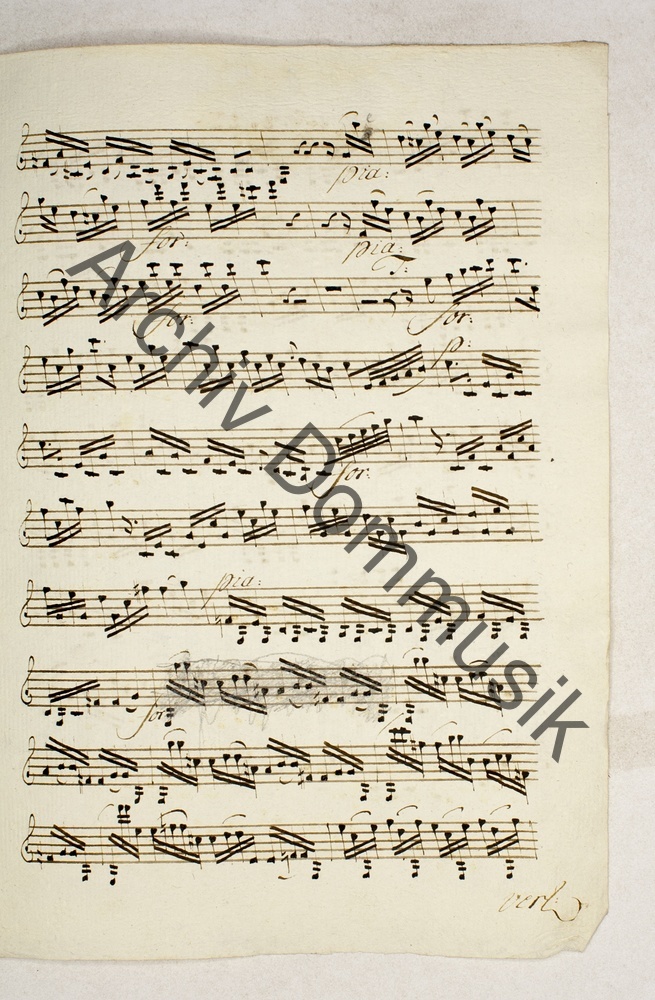 pia:
for: pia:
for: T: for:
p:
for:
pia:
for:
vert
Archiv Dommusik